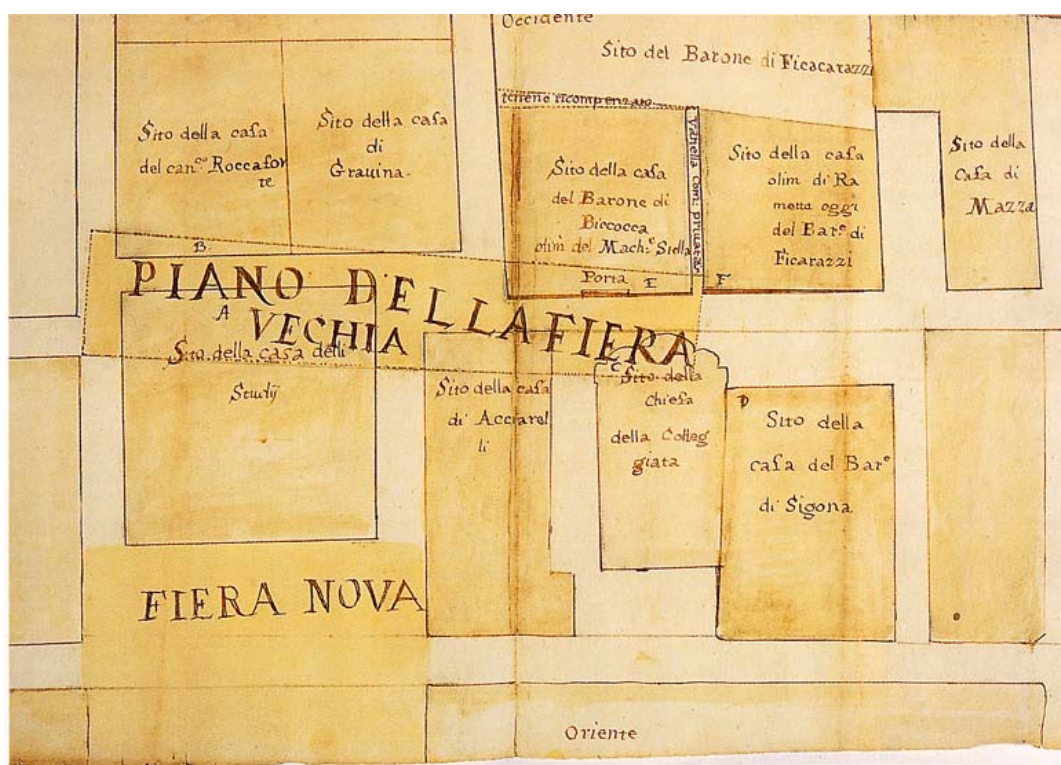 Occidente
Sito del Barone di Ficacarazzi
terreno ricompenzato
Sito della casa
del can.co Roccafor
te
Sito della casa
di
Grauina
Sito della casa
del Barone di
Biccocca
olim del Mach.e Stella
Porta E
Vanella com: priuata
Sito della casa
olim di Ra
metta oggi
del Bar.e di
Ficarazzi
F
Sito della
Casa di
Mazza
B
PIANO DELLA FIERA
VECHIA
A
Sito della casa delli
Studij
Sito della casa
di Acciarel
li
C
Sito della
Chiesa
della Colleg
giata
D
Sito della
casa del Bar.e
di Sigona
FIERA NOVA
Oriente